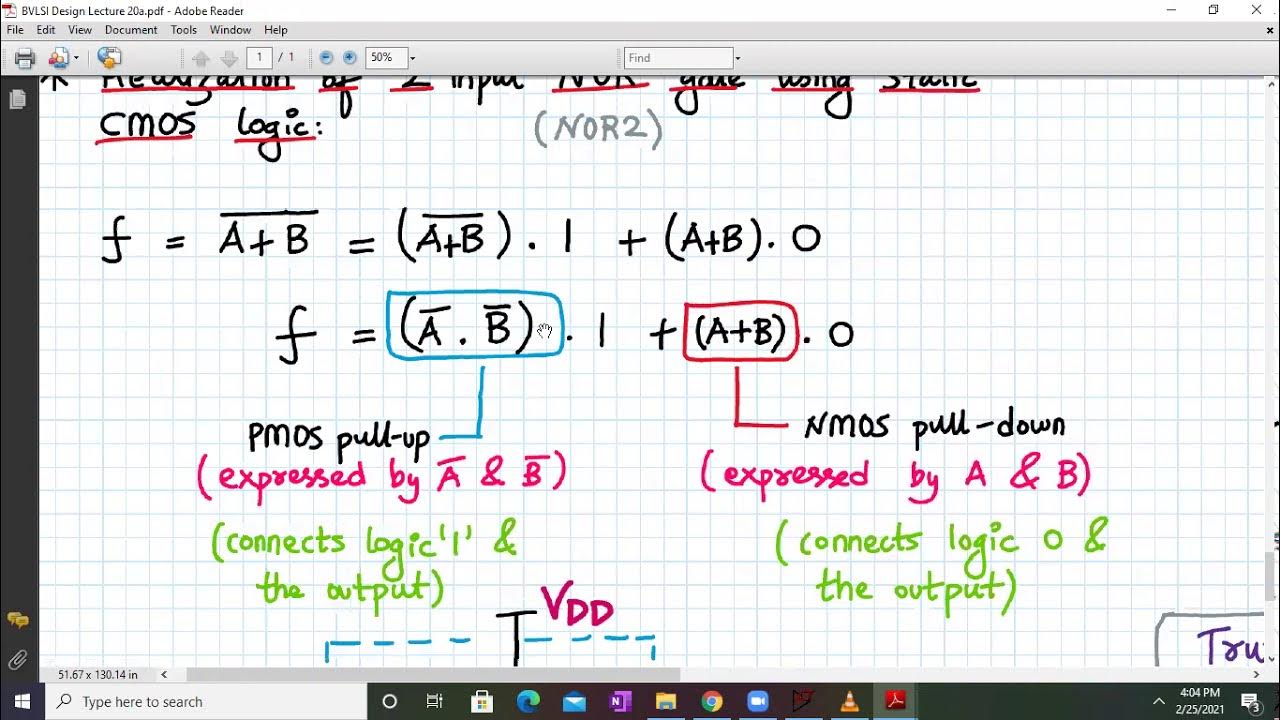 BVLSI Design Lecture 20a.pdf - Adobe Reader
File Edit View Document Tools Window Help
1 / 1 50% Find
* Realization of 2 input NOR gate using static
CMOS logic: (NOR2)
f = \overline{A+B} = (\overline{A+B}) . 1 + (A+B). 0
f = (\overline{A} . \overline{B}) . 1 + (A+B) . 0
PMOS pull-up NMOS pull-down
(expressed by \overline{A} & \overline{B}) (expressed by A & B)
(connects logic '1' & (connects logic 0 &
the output) the output)
VDD
Tru
51.67 x 130.14 in
Type here to search
4:04 PM
2/25/2021
3